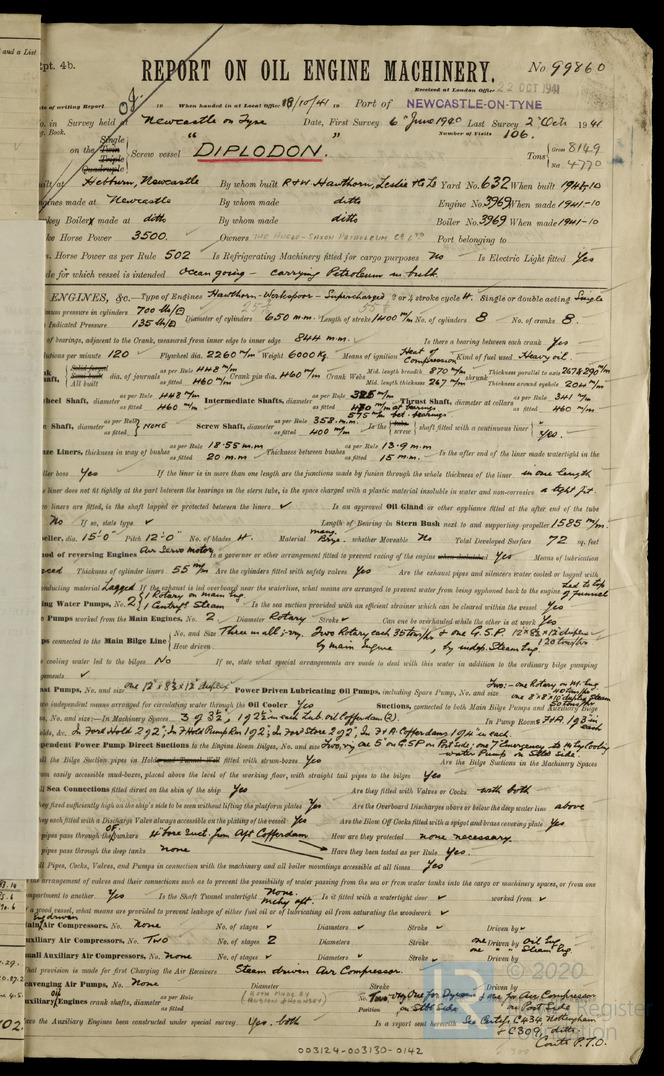 and a List
pt. 4b.
REPORT ON OIL ENGINE MACHINERY.
No. 99860
Received at London Office 22 OCT 1941
te of writing Report 19 When handed in at Local Office 18/10/41 19 Port of NEWCASTLE-ON-TYNE
o. in Survey held at Newcastle on Tyne Date, First Survey 6th June 1940 Last Survey 2nd Oct 1941
g. Book. Number of Visits 106.
on the Single Twin Triple Quadruple Screw vessel "DIPLODON." Tons Gross 8149 Net 4770
uilt at Hebburn, Newcastle By whom built R & W Hawthorn, Leslie & Co Ld Yard No. 632 When built 1941-10
ngines made at Newcastle By whom made ditto Engine No. 3969 When made 1941-10
key Boiler made at ditto By whom made ditto Boiler No. 3969 When made 1941-10
ke Horse Power 3500. Owners THE ANGLO-SAXON PETROLEUM Co LTD Port belonging to
. Horse Power as per Rule 502 Is Refrigerating Machinery fitted for cargo purposes No Is Electric Light fitted Yes
de for which vessel is intended Ocean going - carrying Petroleum in bulk.
ENGINES, &c. Type of Engines Hawthorn-Werkspoor-Supercharged 2 or 4 stroke cycle 4. Single or double acting Single
mum pressure in cylinders 700 lbs/□ Diameter of cylinders 650 m.m. Length of stroke 1400 m/m No. of cylinders 8 No. of cranks 8.
Indicated Pressure 135 lbs/□
of bearings, adjacent to the Crank, measured from inner edge to inner edge 844 m.m. Is there a bearing between each crank Yes
lutions per minute 120 Flywheel dia. 2260 m/m Weight 6000 Kg. Means of ignition Heat of Compression Kind of fuel used Heavy oil.
Solid forged Semi built All built dia. of journals as per Rule 448 m/m as fitted 460 m/m Crank pin dia. 460 m/m Crank Webs Mid. length breadth 870 m/m Mid. length thickness 267 m/m shrunk Thickness parallel to axis 267 & 290 m/m Thickness around eyehole 204 m/m
heel Shaft, diameter as per Rule 448 m/m as fitted 460 m/m Intermediate Shafts, diameter as per Rule 325 m/m as fitted 410 m/m at bearings Thrust Shaft, diameter at collars as per Rule 341 m/m as fitted 460 m/m
e Shaft, diameter as per Rule as fitted NONE Screw Shaft, diameter as per Rule 358 m.m. as fitted 400 m/m Is the tube screw shaft fitted with a continuous liner Yes.
ze Liners, thickness in way of bushes as per Rule 18.55 m.m as fitted 20 m.m Thickness between bushes as per Rule 13.9 m.m as fitted 15 m.m. Is the after end of the liner made watertight in the
ller boss Yes If the liner is in more than one length are the junctions made by fusion through the whole thickness of the liner in one length
e liner does not fit tightly at the part between the bearings in the stern tube, is the space charged with a plastic material insoluble in water and non-corrosive a tight fit.
o liners are fitted, is the shaft lapped or protected between the liners ✓ Is an approved Oil Gland or other appliance fitted at the after end of the tube
No If so, state type ✓ Length of Bearing in Stern Bush next to and supporting propeller 1585 m/m.
eller, dia. 15'-0" Pitch 12'-0" No. of blades 4. Material mang. Brze. whether Moveable No Total Developed Surface 72 sq. feet
hod of reversing Engines Air Servo motor Is a governor or other arrangement fitted to prevent racing of the engine when declutched Yes Means of lubrication
ced Thickness of cylinder liners 55 m/m Are the cylinders fitted with safety valves Yes Are the exhaust pipes and silencers water cooled or lagged with
nducting material Lagged If the exhaust is led overboard near the waterline, what means are arranged to prevent water from being syphoned back to the engine led to top of funnel
ing Water Pumps, No. 2 { 1 Rotary on main Eng. 1 Centrif. Steam Is the sea suction provided with an efficient strainer which can be cleared within the vessel Yes
e Pumps worked from the Main Engines, No. 2 Diameter Rotary Stroke ✓ Can one be overhauled while the other is at work Yes
ps connected to the Main Bilge Line No. and Size Three in all:- viz. Two Rotary each 35 tons/hr & one G.S.P. 12"x8½"x12" duplex 120 tons/hr
How driven by main Engine by indep. Steam Eng.
e cooling water led to the bilges No If so, state what special arrangements are made to deal with this water in addition to the ordinary bilge pumping
gements ✓
ast Pumps, No. and size one 12"x8½"x12" duplex Power Driven Lubricating Oil Pumps, including Spare Pump, No. and size Two:- one Rotary on M. Eng 40 tons/hr one 8"x8"x10" duplex Steam 50 tons/hr
wo independent means arranged for circulating water through the Oil Cooler Yes Suctions, connected to both Main Bilge Pumps and Auxiliary Bilge
s, No. and size:- In Machinery Spaces 3 of 3½", 1 of 2½" in each Lub. oil Cofferdam (2). In Pump Room
lds, &c. In Ford Hold 2 of 2", In Ford Hold Pump Rm 1 of 2", In Ford Store 2 of 2", In F & A Cofferdams 1 of 4" in each.
pendent Power Pump Direct Suctions to the Engine Room Bilges, No. and size Two, viz one 5" on G.S.P. on Port side; one 7" Emergency to M. Eng Cooling water Pump on Stbd side
ll the Bilge Suction pipes in Hold and Tunnel Well fitted with strum-boxes Yes Are the Bilge Suctions in the Machinery Spaces
m easily accessible mud-boxes, placed above the level of the working floor, with straight tail pipes to the bilges Yes
ll Sea Connections fitted direct on the skin of the ship Yes Are they fitted with Valves or Cocks with both
hey fixed sufficiently high on the ship's side to be seen without lifting the platform plates Yes Are the Overboard Discharges above or below the deep water line above
hey each fitted with a Discharge Valve always accessible on the plating of the vessel Yes Are the Blow Off Cocks fitted with a spigot and brass covering plate Yes
pipes pass through the OF. bunkers 4" bore suct. from Aft Cofferdam How are they protected none necessary.
pipes pass through the deep tanks none Have they been tested as per Rule Yes.
ll Pipes, Cocks, Valves, and Pumps in connection with the machinery and all boiler mountings accessible at all times Yes
e arrangement of valves and their connections such as to prevent the possibility of water passing from the sea or from water tanks into the cargo or machinery spaces, or from one
mpartment to another. Yes Is the Shaft Tunnel watertight None. mchy aft. Is it fitted with a watertight door ✓ worked from ✓
wood vessel, what means are provided to prevent leakage of either fuel oil or of lubricating oil from saturating the woodwork ✓
ain Eng driven Air Compressors, No. None No. of stages ✓ Diameters ✓ Stroke ✓ Driven by ✓
uxiliary Air Compressors, No. Two No. of stages 2 Diameters ✓ Stroke Driven by one Oil Eng one " " Steam Eng.
all Auxiliary Air Compressors, No. None No. of stages ✓ Diameters ✓ Stroke
hat provision is made for first Charging the Air Receivers Steam driven Air Compressor.
cavenging Air Pumps, No. None Diameter Stroke Driven by ✓
uxiliary oil Engines crank shafts, diameter as per Rule as fitted (BOTH MADE BY RUSTON & HORNSBY) No. Two - viz one for Dynamo & one for Air Compressor
Position on Stbd Side on Port Side
ve the Auxiliary Engines been constructed under special survey Yes. both Is a report sent herewith See Certifs C434 Nottingham
& C309 ditto
Contd P.T.O.
003124-003130-0142
© 2020